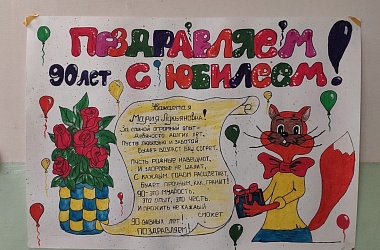 ПОЗДРАВЛЯЕМ
90 лет С ЮБИЛЕЕМ!
Уважаемая
Мария Лукьяновна!
За спиной огромный опыт —
Длинною в долгих лет,
Пусть любовью и заботой
Будет возраст Ваш согрет.
Пусть родные навещают,
И здоровье не шалит,
С каждым годом расцветает,
Будет прочным, как гранит!
90-это мудрость,
Это опыт, это честь.
И прожить не каждый
сможет
90 славных лет!
ПОЗДРАВЛЯЕМ!